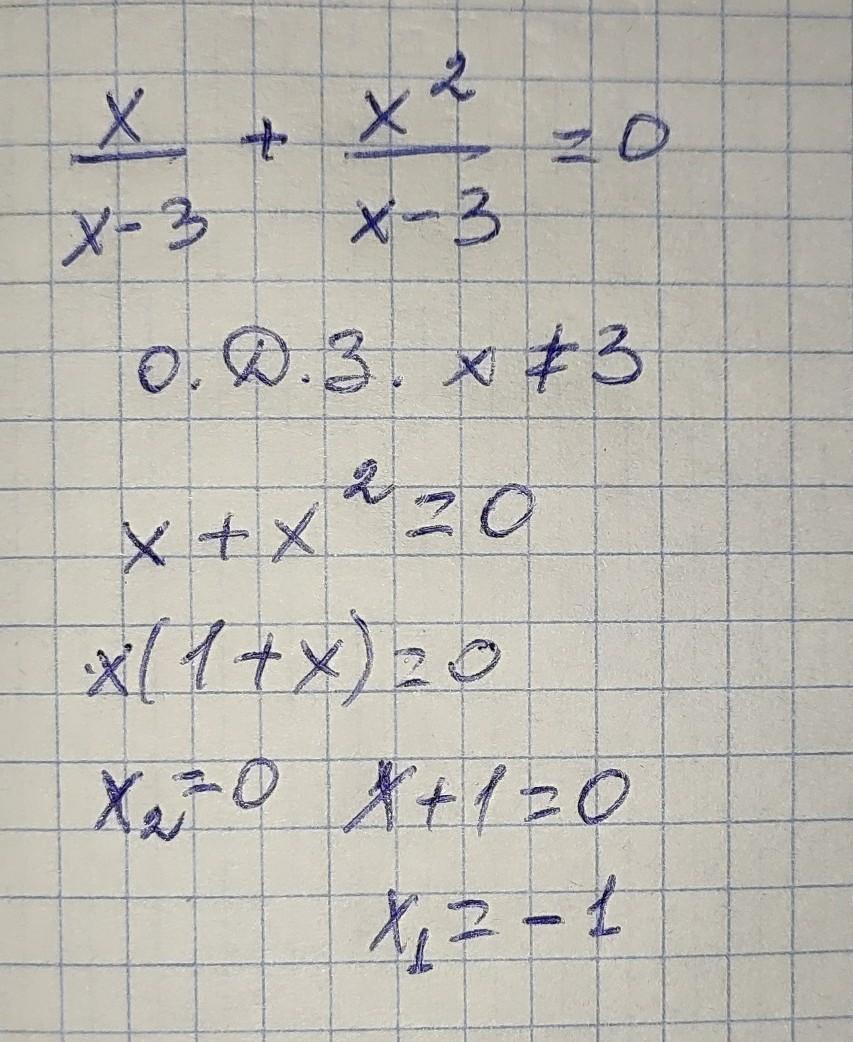 x/(x-3) + x²/(x-3) = 0
О.Д.З. x ≠ 3
x + x² = 0
x(1+x) = 0
x₂ = 0 x+1 = 0
x₁ = -1